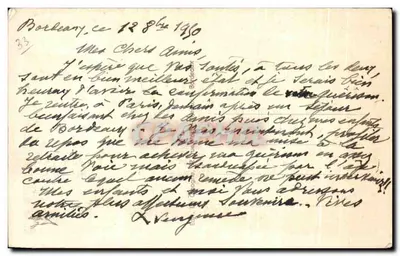 Bordeaux, ce 12 8bre 1950
33
Mes Chers Amis,
J'espère que vos santés, à tous les deux,
sont en bien meilleur état et je serais bien
heureux d'avoir la confirmation de votre guérison.
Je rentre, à Paris, demain après un séjour
bienfaisant chez les amis puis chez mes enfants
de Bordeaux. Je vais maintenant, profiter
du repos que me donne ma mise à la
retraite pour achever ma guérison en
bonne voie mais
contre lequel aucun remède ne peut intervenir!!
Mes enfants et moi vous adressons
notre plus affectueux souvenir. Vives
amitiés.